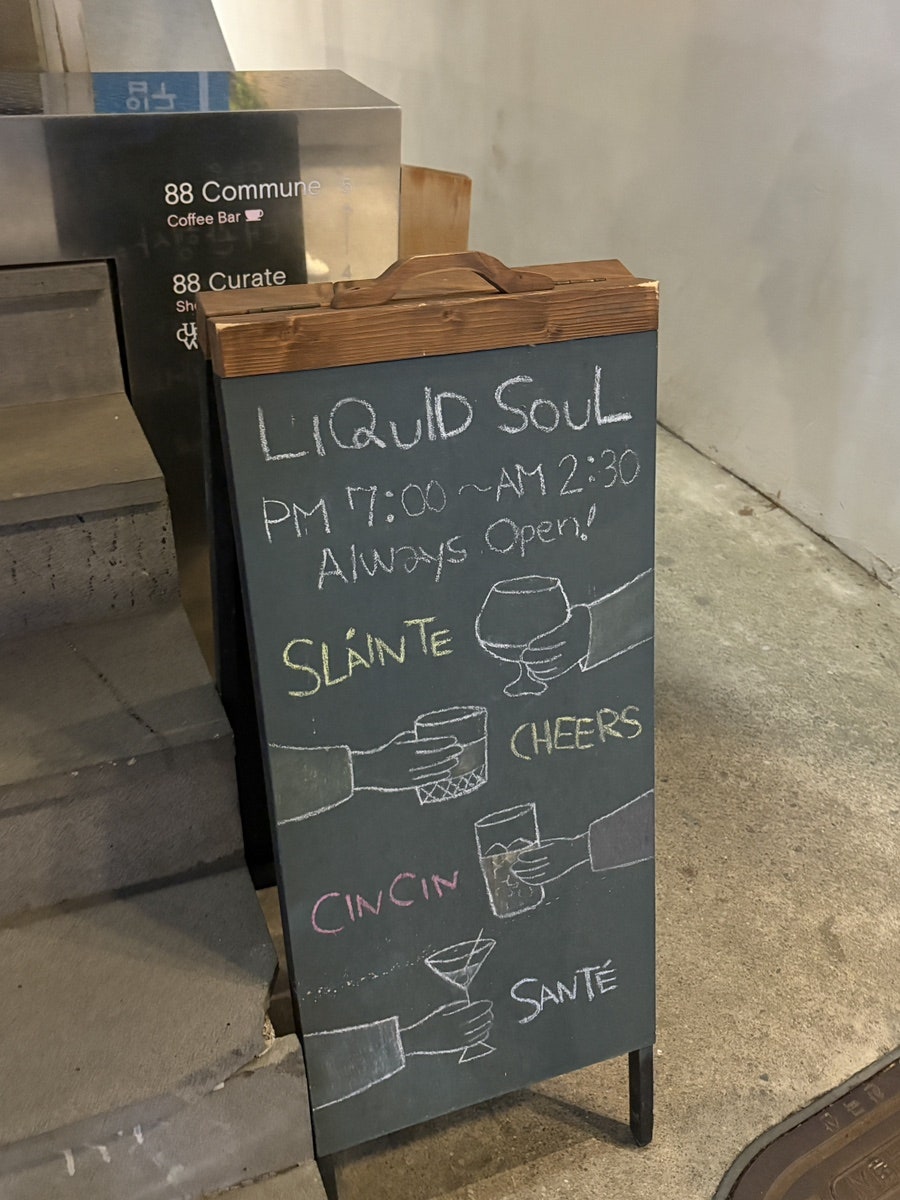 88 Commune
Coffee Bar
88 Curate
LIQUID SOUL
PM 7:00 ~ AM 2:30
Always Open!
SLÁINTE
CHEERS
CINCIN
SANTÉ